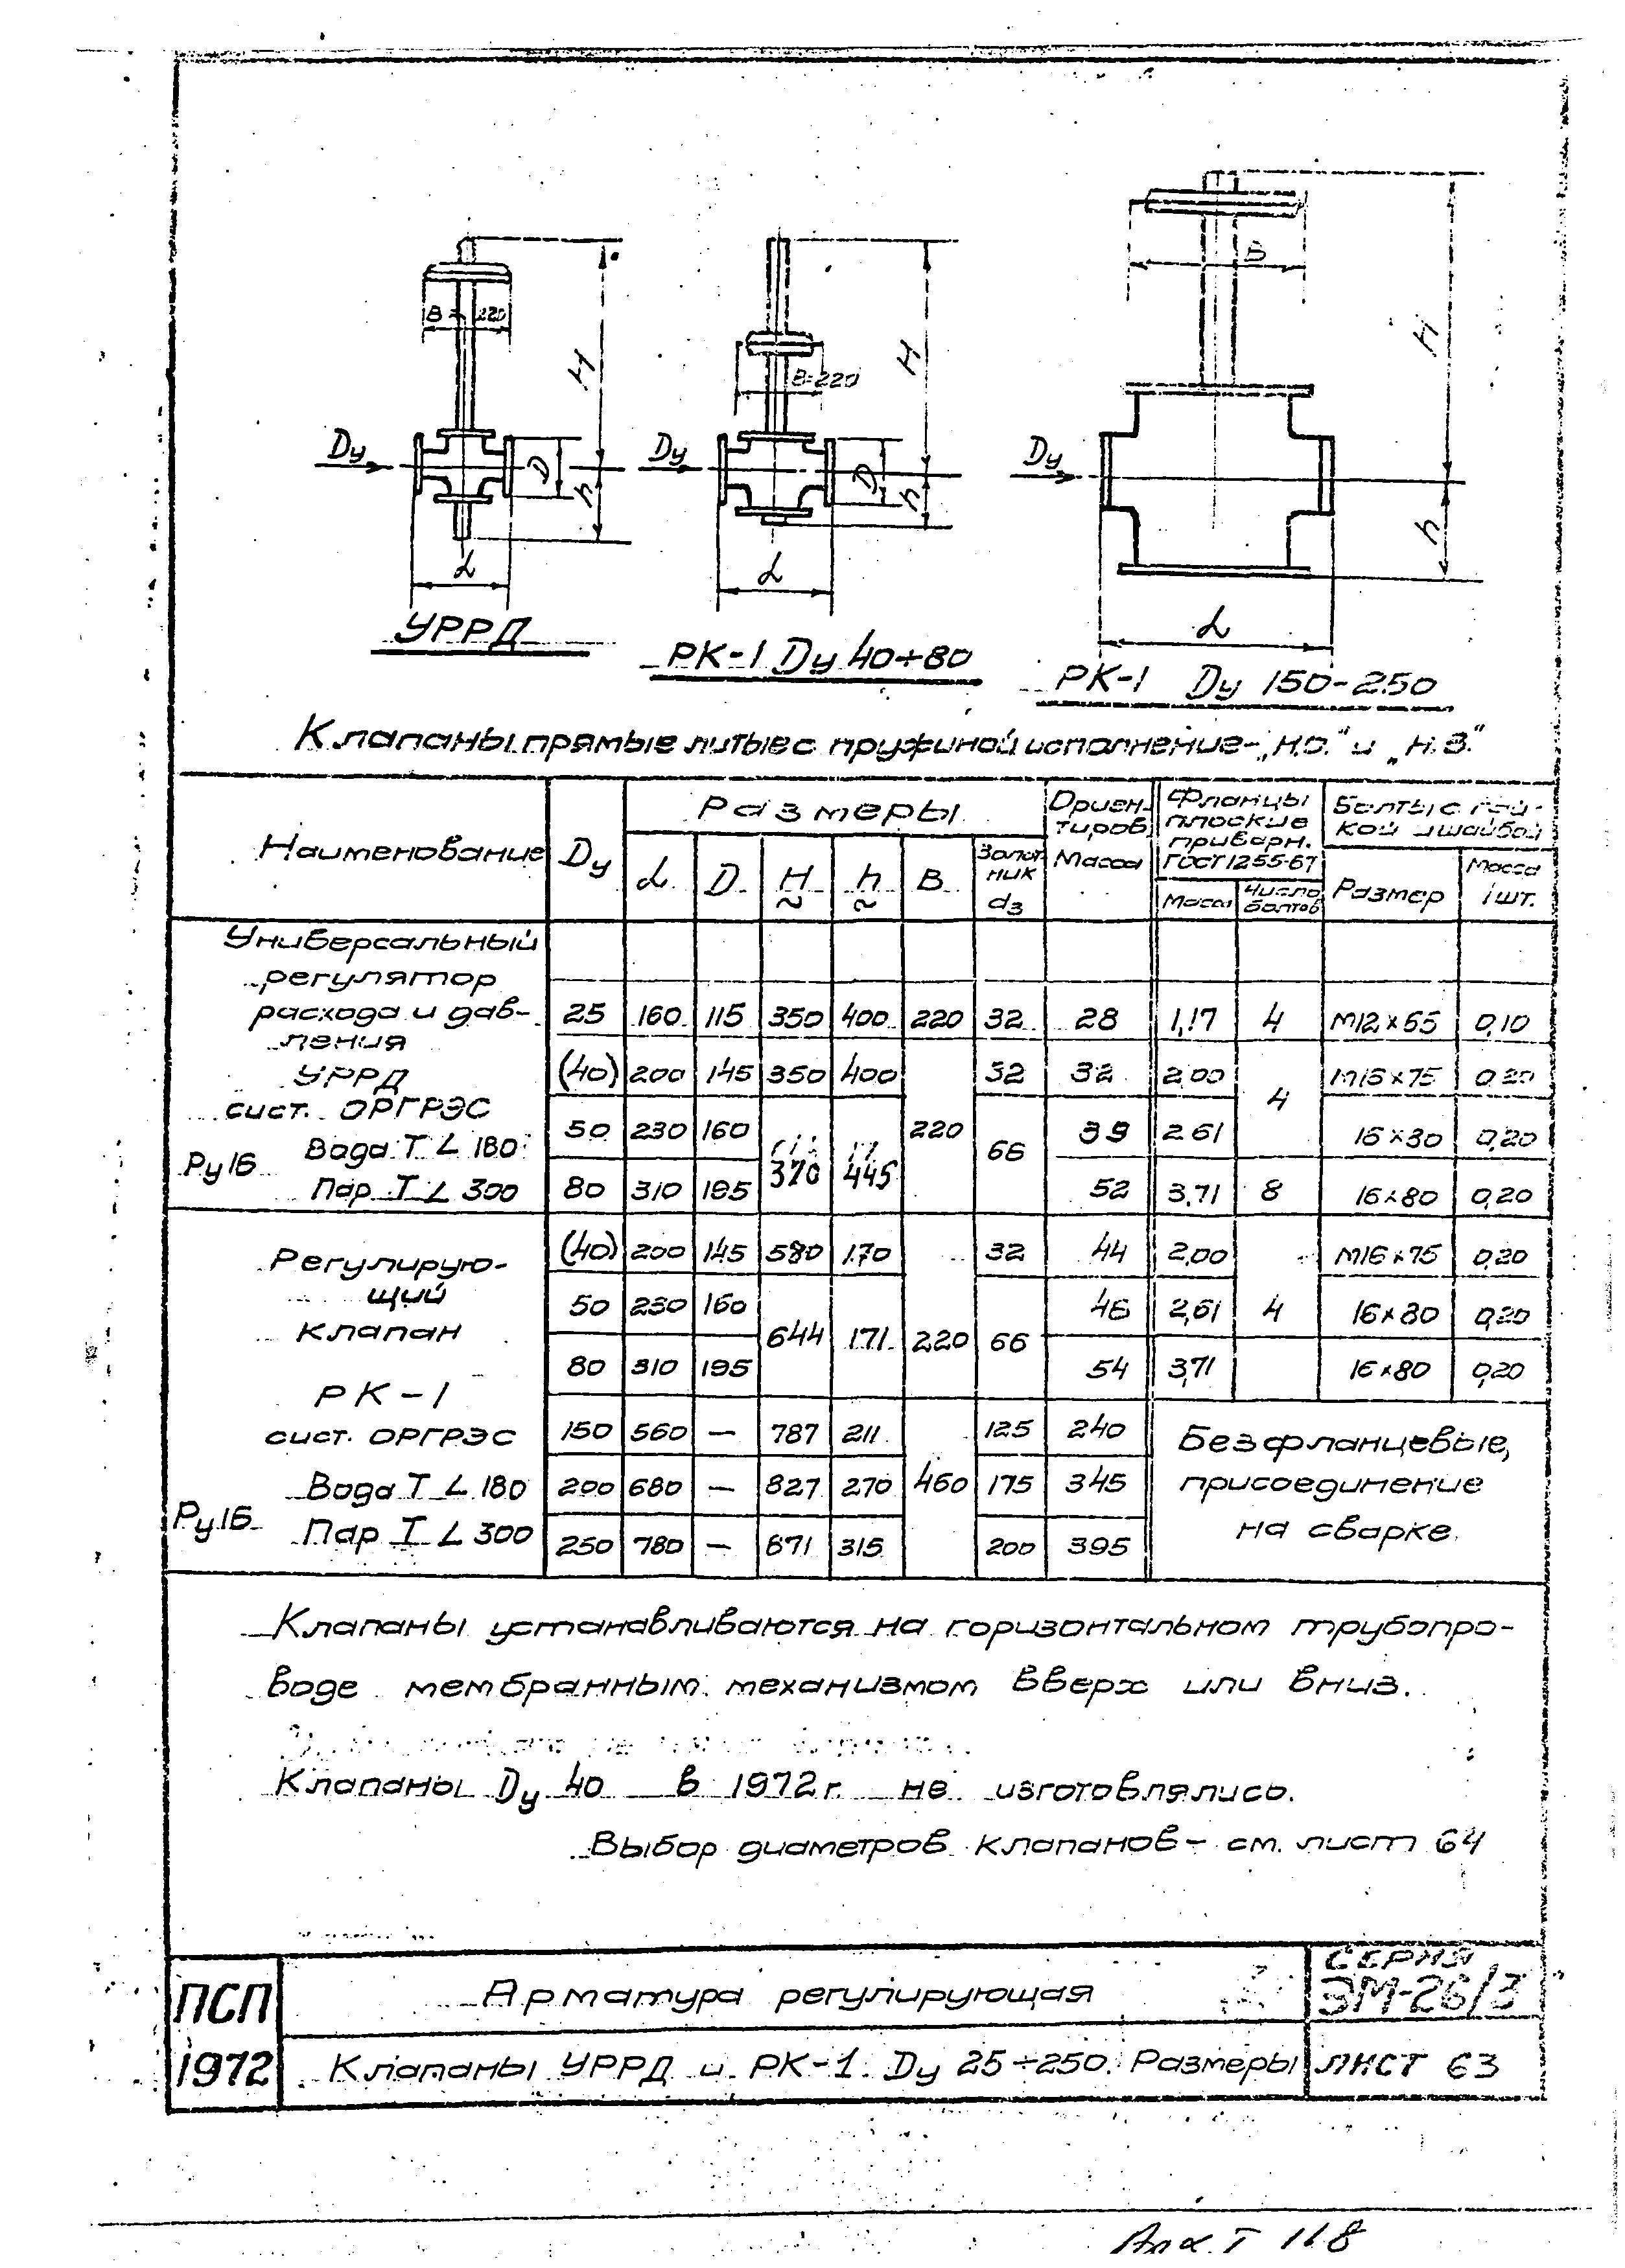 B = 220
H
Dу
D
h
L
УРРД
H
B=220
Dу
D
h
L
РК-1 Dу 40÷80
B
H
Dу
h
L
РК-1 Dу 150-250
Клапаны прямые литые с пружиной исполнение-„Н.О." и „Н.З."
Наименование Dу Размеры Ориен-тиров. Масса Фланцы плоские приварн. ГОСТ 1255-67 Болты с гай-кой и шайбой
L D H ~ h ~ B Золот-ник dз Масса Число болтов Размер Масса 1 шт.
Универсальный
регулятор
расхода и дав-
ления
УРРД
сист. ОРГРЭС
Ру16 Вода T ∠ 180
Пар T ∠ 300
25 160 115 350 400 220 32 28 1,17 4 М12×65 0,10
(40) 200 145 350 400 32 32 2,00 М16×75 0,20
4
50 230 160 220 66 39 2,61 16×80 0,20
370 445
80 310 195 52 3,71 8 16×80 0,20
Регулирую-
щий
клапан
РК-1
сист. ОРГРЭС
Вода T ∠ 180
Ру16 Пар T ∠ 300
(40) 200 145 580 170 32 44 2,00 М16×75 0,20
50 230 160 46 2,61 4 16×80 0,20
644 171 220 66
80 310 195 54 3,71 16×80 0,20
150 560 — 787 211 125 240
200 680 — 827 270 460 175 345
250 780 — 871 315 200 395
Безфланцевые,
присоединение
на сварке.
Клапаны устанавливаются на горизонтальном трубопро-
воде мембранным механизмом вверх или вниз.
Клапаны Dу 40 в 1972г. не изготовлялись.
Выбор диаметров клапанов - см. лист 64
ПСП
1972
Арматура регулирующая
Клапаны УРРД и РК-1 Dу 25÷250. Размеры
СЕРИЯ
ЭМ-26/3
ЛИСТ 63
118